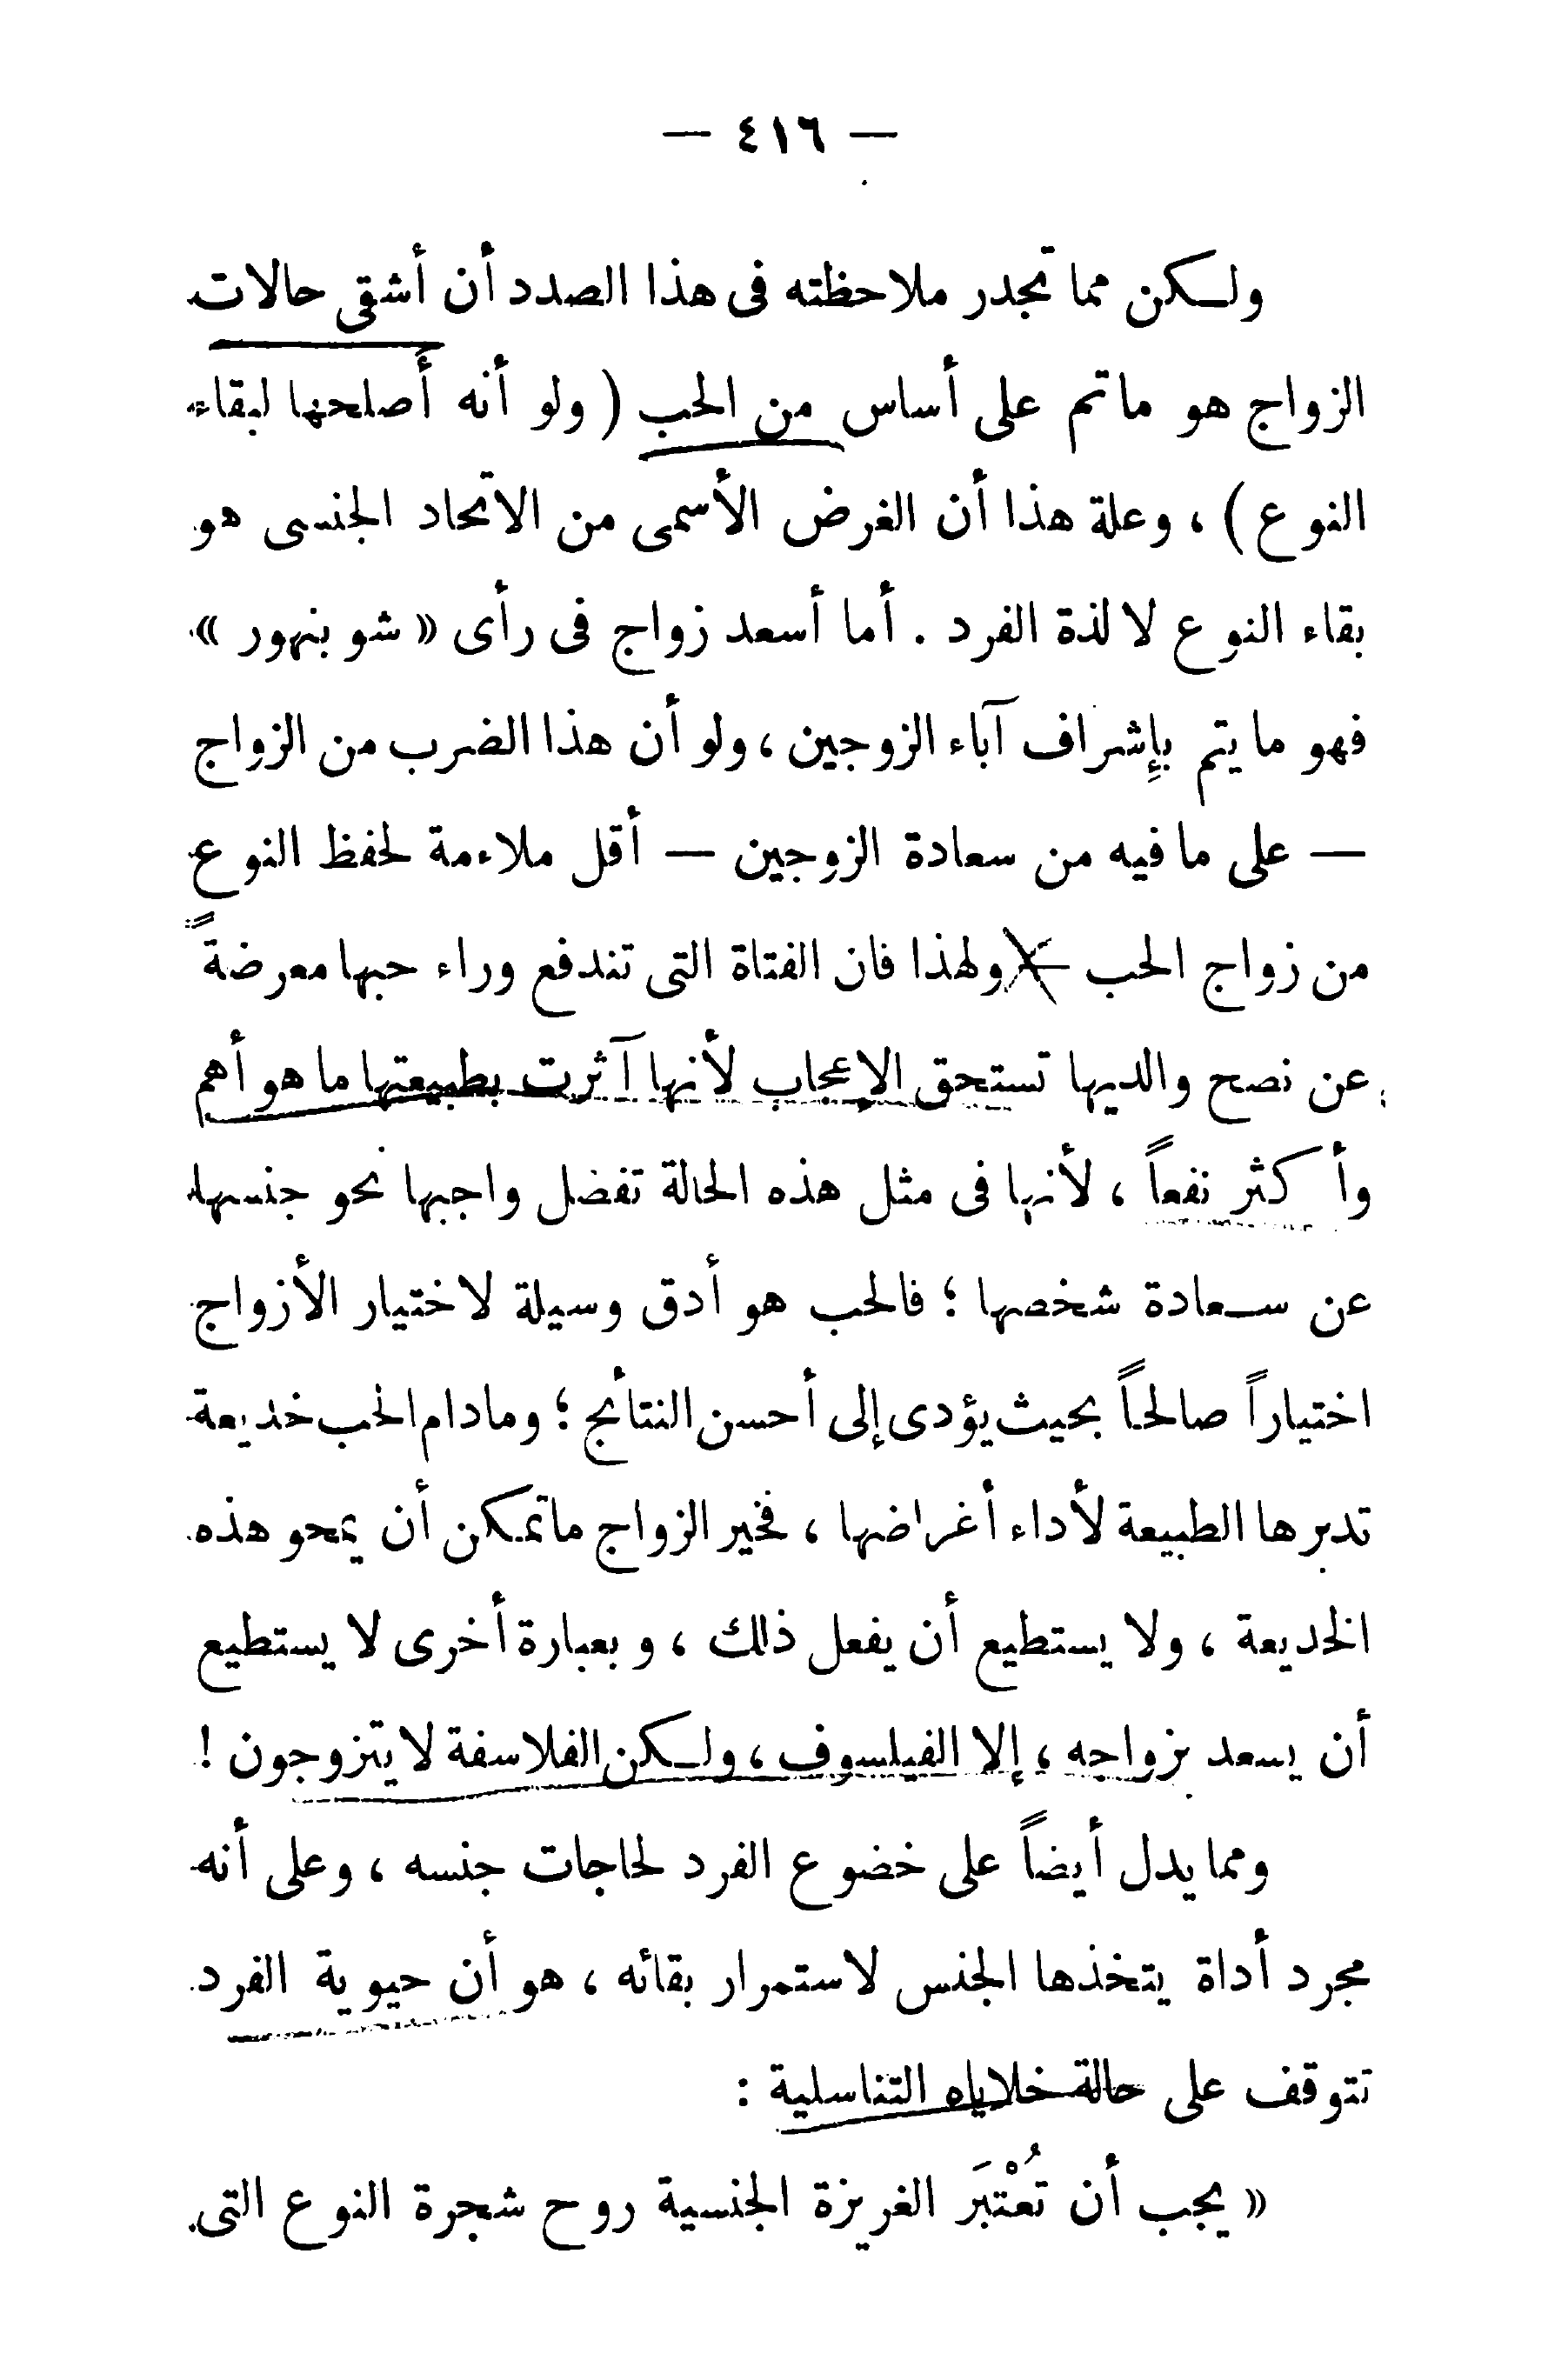 — ٤١٦ —
ولكن مما تجدر ملاحظته فى هذا الصدد أن أشقى حالات
الزواج هو ماتم على أساس من الحب ( ولو أنه أصلحها لبقاء
النوع ) ، وعلة هذا أن الغرض الأسمى من الاتحاد الجنسى هو
بقاء النوع لا لذة الفرد . أما أسعد زواج فى رأى « شوبنهور »
فهو ما يتم بإشراف آباء الزوجين ، ولو أن هذا الضرب من الزواج
— على ما فيه من سعادة الزوجين — أقل ملاءمة لحفظ النوع
من زواج الحب — ولهذا فان الفتاة التى تندفع وراء حبها معرضةً
عن نصح والديها تستحق الإعجاب لأنها آثرت بطبيعتها ما هو أهم
وأكثر نفعاً ، لأنها فى مثل هذه الحالة تفضل واجبها نحو جنسها
عن سعادة شخصها ؛ فالحب هو أدق وسيلة لاختيار الأزواج
اختياراً صالحاً بحيث يؤدى إلى أحسن النتائج ؛ ومادام الحب خديعة
تدبرها الطبيعة لأداء أغراضها ، فخير الزواج ماتمكن أن يمحو هذه
الخديعة ، ولا يستطيع أن يفعل ذلك ، وبعبارة أخرى لا يستطيع
أن يسعد بزواجه ، إلا الفيلسوف ، ولكن الفلاسفة لا يتزوجون !
ومما يدل أيضاً على خضوع الفرد لحاجات جنسه ، وعلى أنه
مجرد أداة يتخذها الجنس لاستمرار بقائه ، هو أن حيوية الفرد
تتوقف على حالة خلاياه التناسلية :
« يجب أن تُعْتبَر الغريزة الجنسية روح شجرة النوع التى